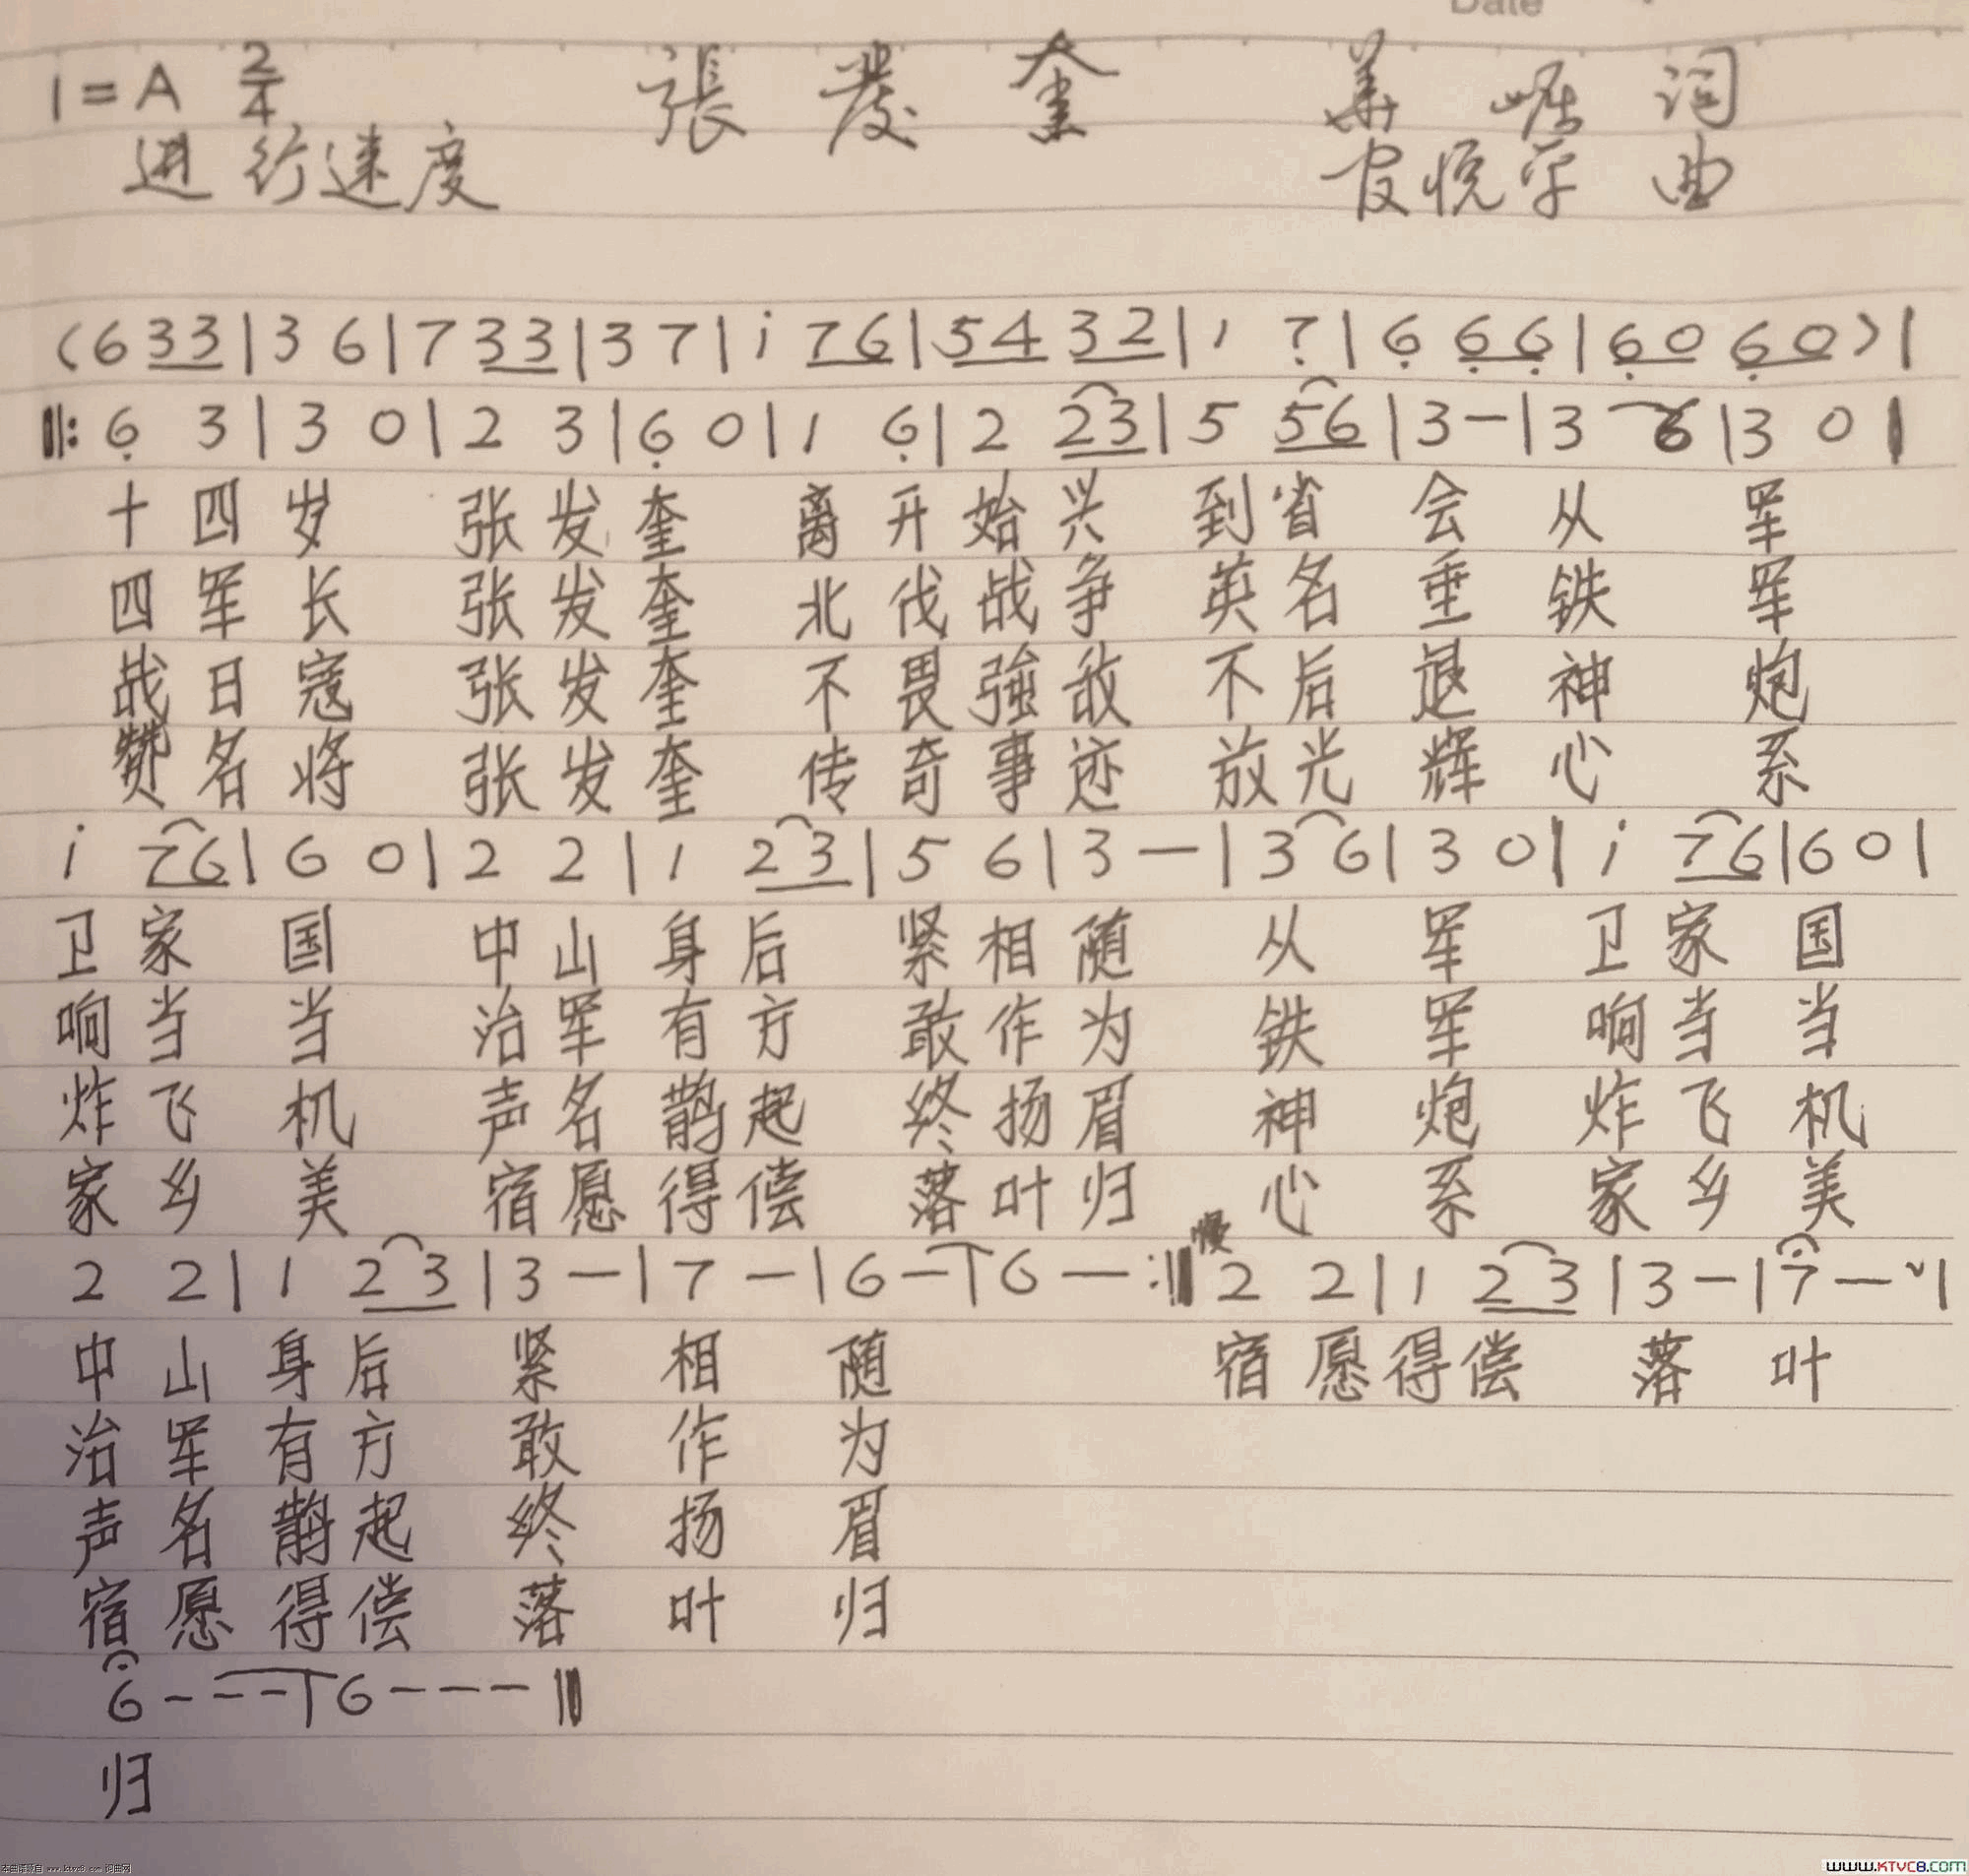 Date
1=A 2/4 張發奎 词
进行速度 曲
(6 33|36|7 33|37|i 76|54 32|1 7̣|6̣ 6̣6̣|6̣0 6̣0)|
‖: 6̣ 3|3 0|2 3|6̣ 0|1 6̣|2 23|5 56|3-|3 6|3 0|
十四岁 张发奎 离开始兴 到省会 从 军
四军长 张发奎 北伐战争 英名垂 铁 军
战日寇 张发奎 不畏强敌 不后退 神 炮
赞名将 张发奎 传奇事迹 放光辉 心 系
i 76|6 0|2 2|1 23|5 6|3 -|3 6|3 0|i 76|6 0|
卫家国 中山身后 紧相随 从 军 卫家国
响当当 治军有方 敢作为 铁 军 响当当
炸飞机 声名鹊起 终扬眉 神 炮 炸飞机
家乡美 宿愿得偿 落叶归 心 系 家乡美
慢
2 2|1 23|3 -|7 -|6 -|6 - :‖ 2 2|1 23|3 -|7 -|
中山身后 紧 相 随 宿愿得偿 落 叶
治军有方 敢 作 为
声名鹊起 终 扬 眉
宿愿得偿 落 叶 归
6 - - -|6 - - -‖
归
本曲谱源自 www.ktvc8.com 词曲网
www.KTVC8.com